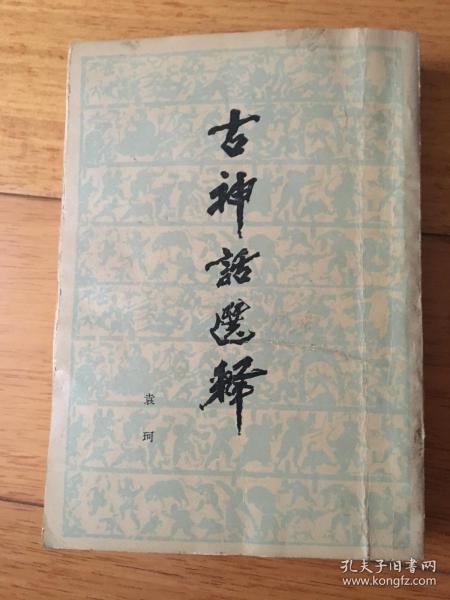 古神話選釋
袁珂
孔夫子旧书网
www.kongfz.com